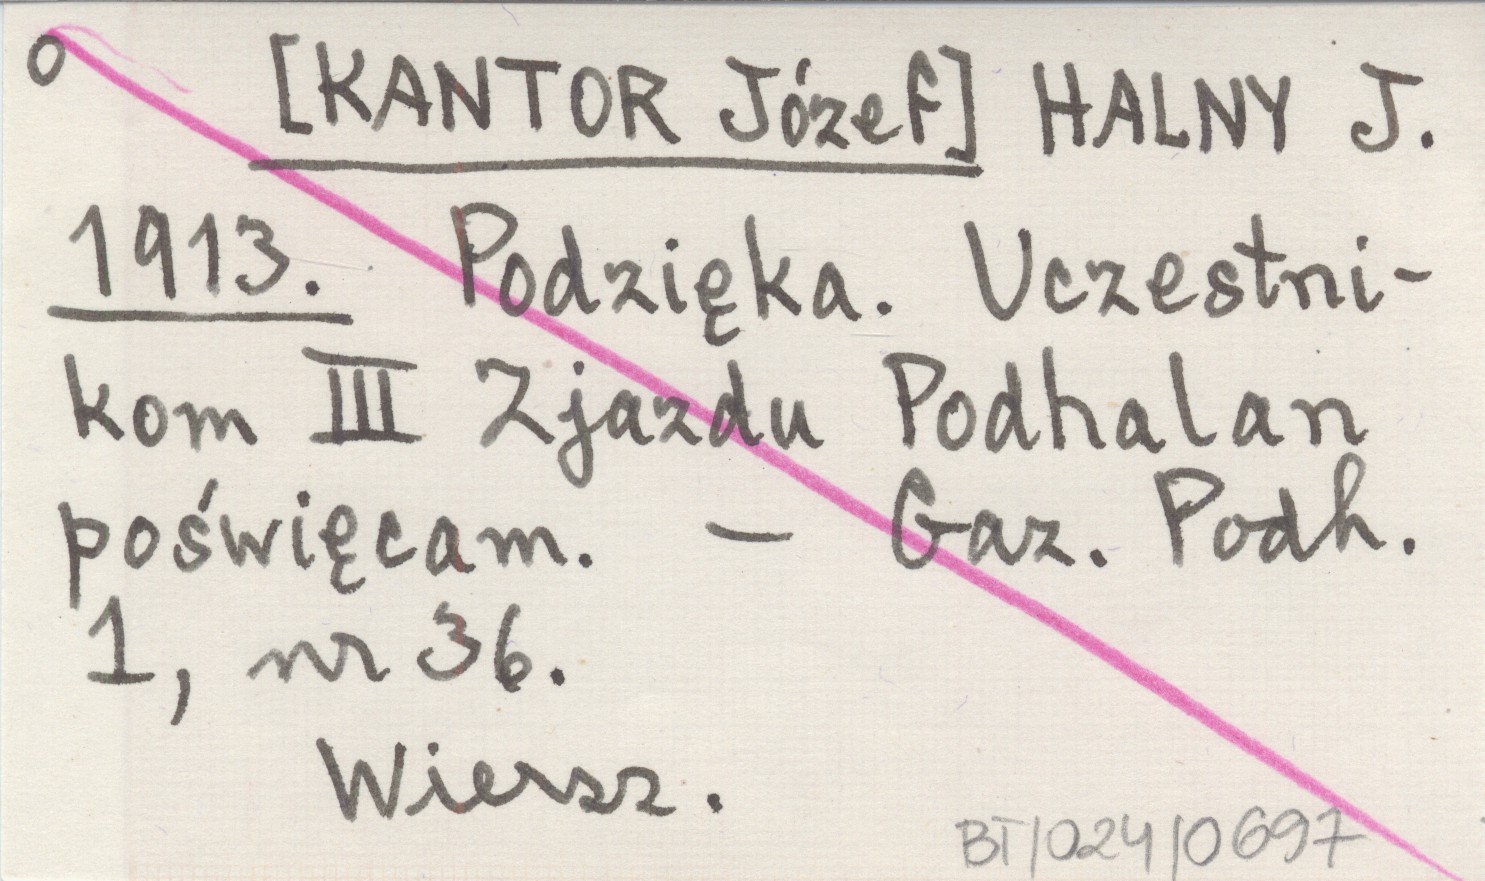 o [KANTOR Józef] HALNY J.
1913. Podzięka. Uczestni-
kom III Zjazdu Podhalan
poświęcam. – Gaz. Podh.
1, nr 36.
Wiersz.
BT/024/0697